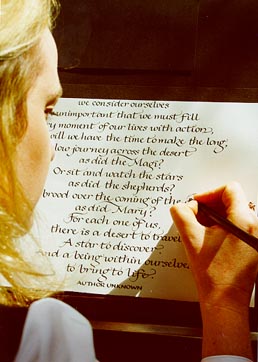 we consider ourselves
unimportant that we must fill
y moment of our lives with action,
will we have the time to make the long,
low journey across the desert
as did the Magi?
Or sit and watch the stars
as did the shepherds?
brood over the coming of the
as did Mary?
For each one of us,
there is a desert to travel
A star to discover?
And a being within ourselves
to bring to life.
AUTHOR UNKNOWN